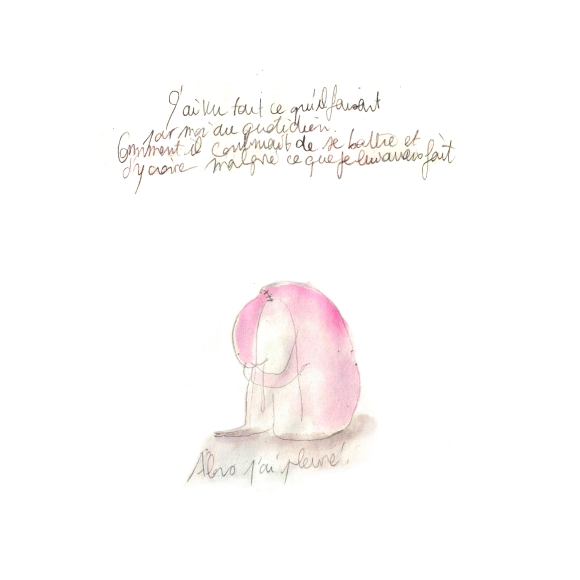 J'ai vu tout ce qu'il faisait
par moi au quotidien.
Comment il continuait de se battre et
d'y croire malgré ce que je lui avais fait
Alors j'ai pleuré.